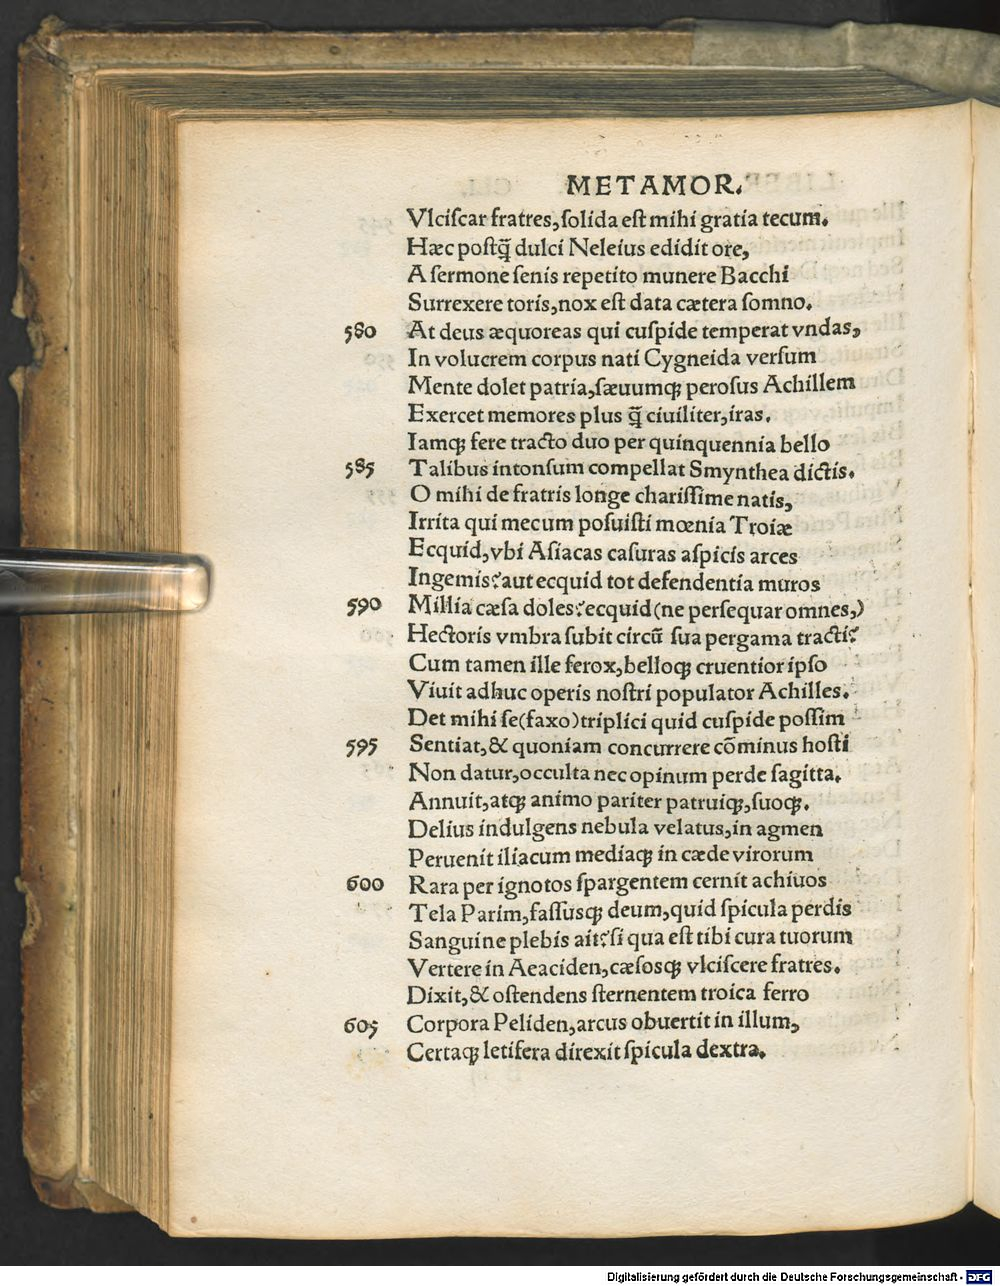 METAMOR.
Vlciſcar fratres, ſolida eſt mihi gratia tecum.
Hæc poſtq̃ dulci Neleius edidit ore,
A ſermone ſenis repetito munere Bacchi
Surrexere toris, nox eſt data cætera ſomno.
580 At deus æquoreas qui cuſpide temperat vndas,
In volucrem corpus nati Cygneida verſum
Mente dolet patria, ſæuumqꝫ peroſus Achillem
Exercet memores plus q̃ ciuiliter, iras.
Iamqꝫ fere tracto duo per quinquennia bello
585 Talibus intonſum compellat Smynthea dictis.
O mihi de fratris longe chariſſime natis,
Irrita qui mecum poſuiſti mœnia Troiæ
Ecquid, vbi Aſiacas caſuras aſpicis arces
Ingemis? aut ecquid tot defendentia muros
590 Millia cæſa doles? ecquid (ne perſequar omnes,)
Hectoris vmbra ſubit circū ſua pergama tracti?
Cum tamen ille ferox, belloqꝫ cruentior ipſo
Viuit adhuc operis noſtri populator Achilles.
Det mihi ſe (faxo) triplici quid cuſpide poſſim
595 Sentiat, & quoniam concurrere cōminus hoſti
Non datur, occulta nec opinum perde ſagitta.
Annuit, atqꝫ animo pariter patruiqꝫ, ſuoqꝫ.
Delius indulgens nebula velatus, in agmen
Peruenit iliacum mediaqꝫ in cæde virorum
600 Rara per ignotos ſpargentem cernit achiuos
Tela Parim, faſſusqꝫ deum, quid ſpicula perdis
Sanguine plebis ait? ſi qua eſt tibi cura tuorum
Vertere in Aeaciden, cæſosqꝫ vlciſcere fratres.
Dixit, & oſtendens ſternentem troica ferro
605 Corpora Peliden, arcus obuertit in illum,
Certaqꝫ letifera direxit ſpicula dextra.
Digitalisierung gefördert durch die Deutsche Forschungsgemeinschaft - DFG